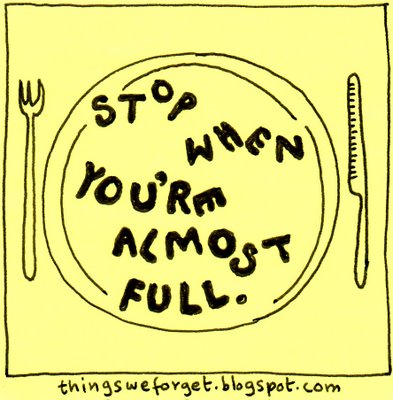 STOP
WHEN
YOU'RE
ALMOST
FULL.
thingsweforget.blogspot.com